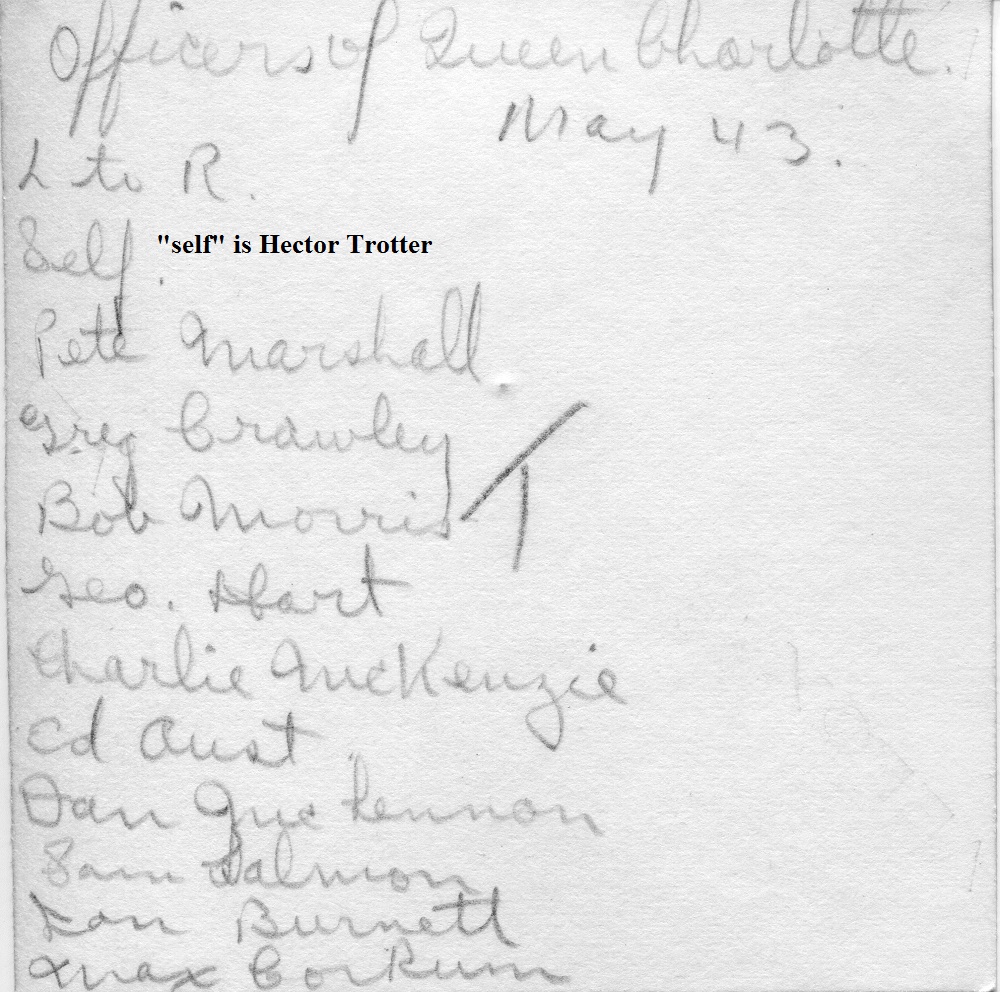 Officers of Queen Charlotte.
May 43.
L to R.
Self. "self" is Hector Trotter
Pete Marshall.
Greg Crawley
Bob Morris
Geo. Hart
Charlie McKenzie
Ed Aust
Dan McLennon
Sam Salmon
Don Burnett
Max Corkum